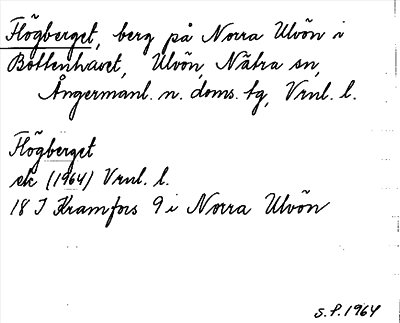 Flögberget, berg på Norra Ulvön i
Bottenhavet, Ulvön, Nätra sn,
Ångermanl. n. doms. tg, Vrnl. l.
Flögberget
ek (1964) Vrnl. l.
18 I Kramfors 9 i Norra Ulvön
S.P. 1964